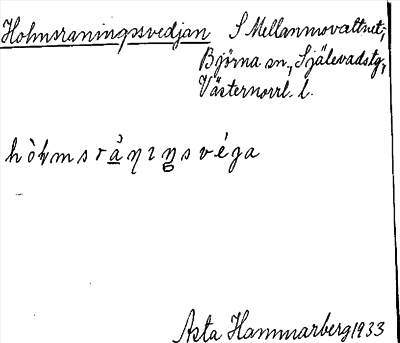 Holmsraningsvedjan S Mellanmovattnet,
Björna sn., Själevadstg,
Västernorrl. l.
hòḷmsrå̀ŋɪŋsvéga
Asta Hammarberg 1933